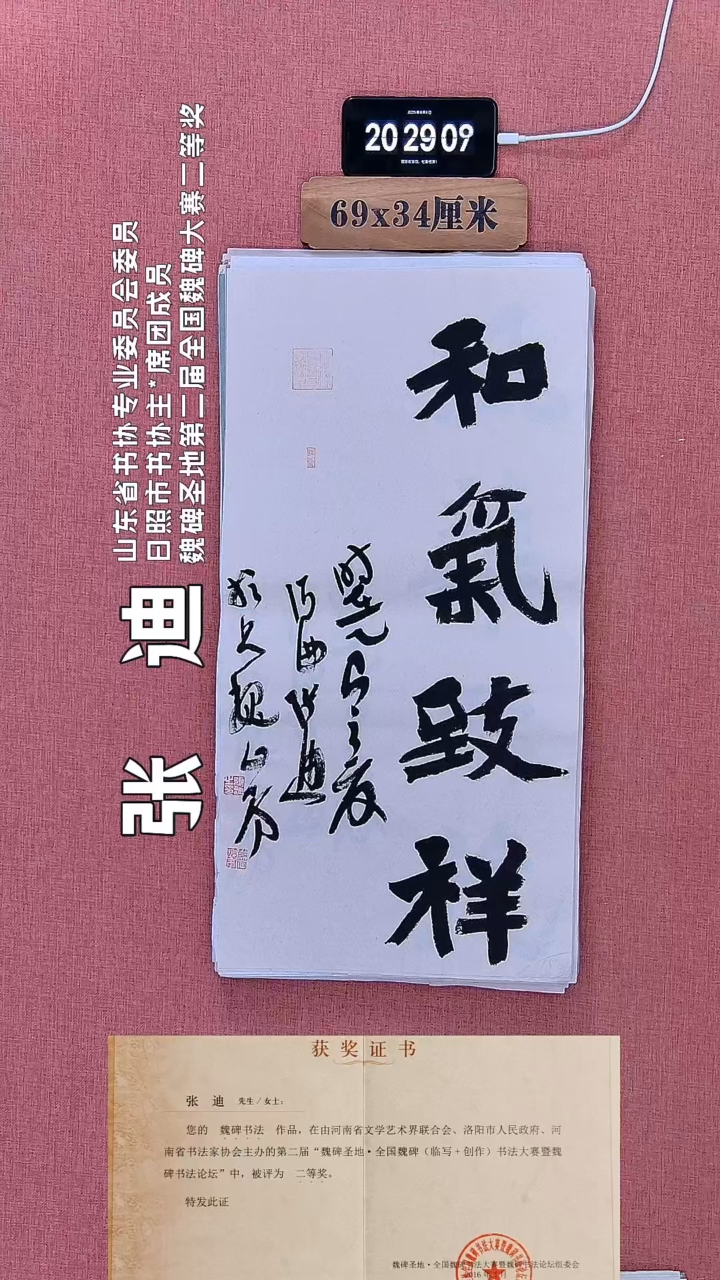 20 29 09
69x34厘米
和氣致祥
山东省书协专业委员会委员
日照市书协主*席团成员
魏碑圣地第二届全国魏碑大赛二等奖
张 迪
获奖证书
张 迪 先生/女士:
您的 魏碑书法 作品,在由河南省文学艺术界联合会、洛阳市人民政府、河
南省书法家协会主办的第二届“魏碑圣地·全国魏碑(临写+创作)书法大赛暨魏
碑书法论坛”中,被评为 二等奖。
特发此证
魏碑圣地·全国魏碑书法大赛暨魏碑书法论坛组委会